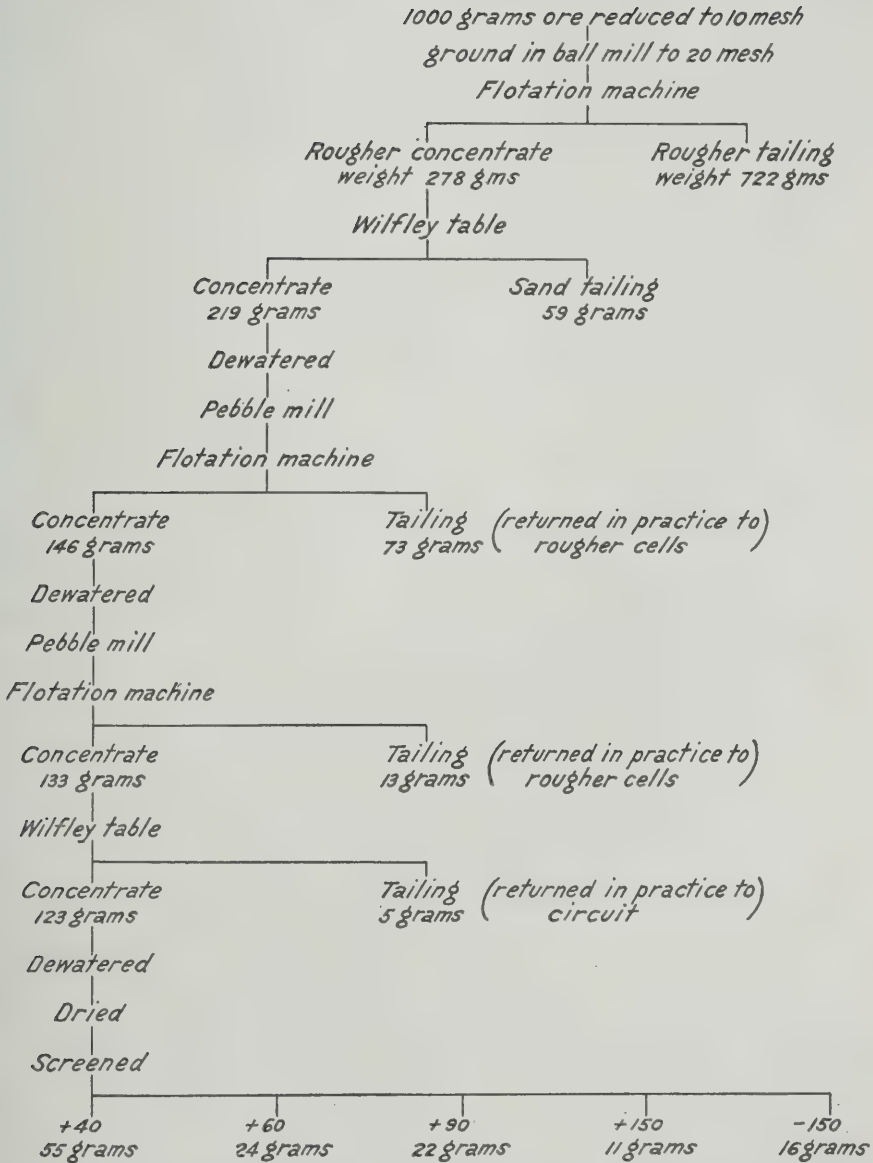 1000 grams ore are reduced to 10 mesh
ground in ball mill to 20 mesh
Flotation machine
Rougher concentrate
weight 278 gms
Rougher tailing
weight 722 gms
Wilfley table
Concentrate
219 grams
Sand tailing
59 grams
Dewatered
Pebble mill
Flotation machine
Concentrate
146 grams
Tailing (returned in practice to
73 grams rougher cells)
Dewatered
Pebble mill
Flotation machine
Concentrate
133 grams
Tailing (returned in practice to
13 grams rougher cells)
Wilfley table
Concentrate
123 grams
Tailing (returned in practice to
5 grams circuit)
Dewatered
Dried
Screened
+40 +60 +90 +150 -150
55 grams 24 grams 22 grams 11 grams 16 grams